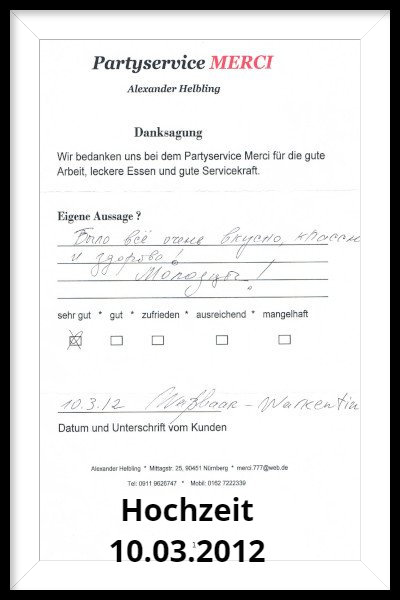 Partyservice MERCI
Alexander Helbling
Danksagung
Wir bedanken uns bei dem Partyservice Merci für die gute
Arbeit, leckere Essen und gute Servicekraft.
Eigene Aussage ?
Было всё очень вкусно, классно
и здорово!
Молодцы!
sehr gut * gut * zufrieden * ausreichend * mangelhaft
10.3.12 Warkentin
Datum und Unterschrift vom Kunden
Alexander Helbling * Mittagstr. 25, 90451 Nürnberg * merci.777@web.de
Tel: 0911 9626747 * Mobil: 0162 7222339
1
Hochzeit
10.03.2012